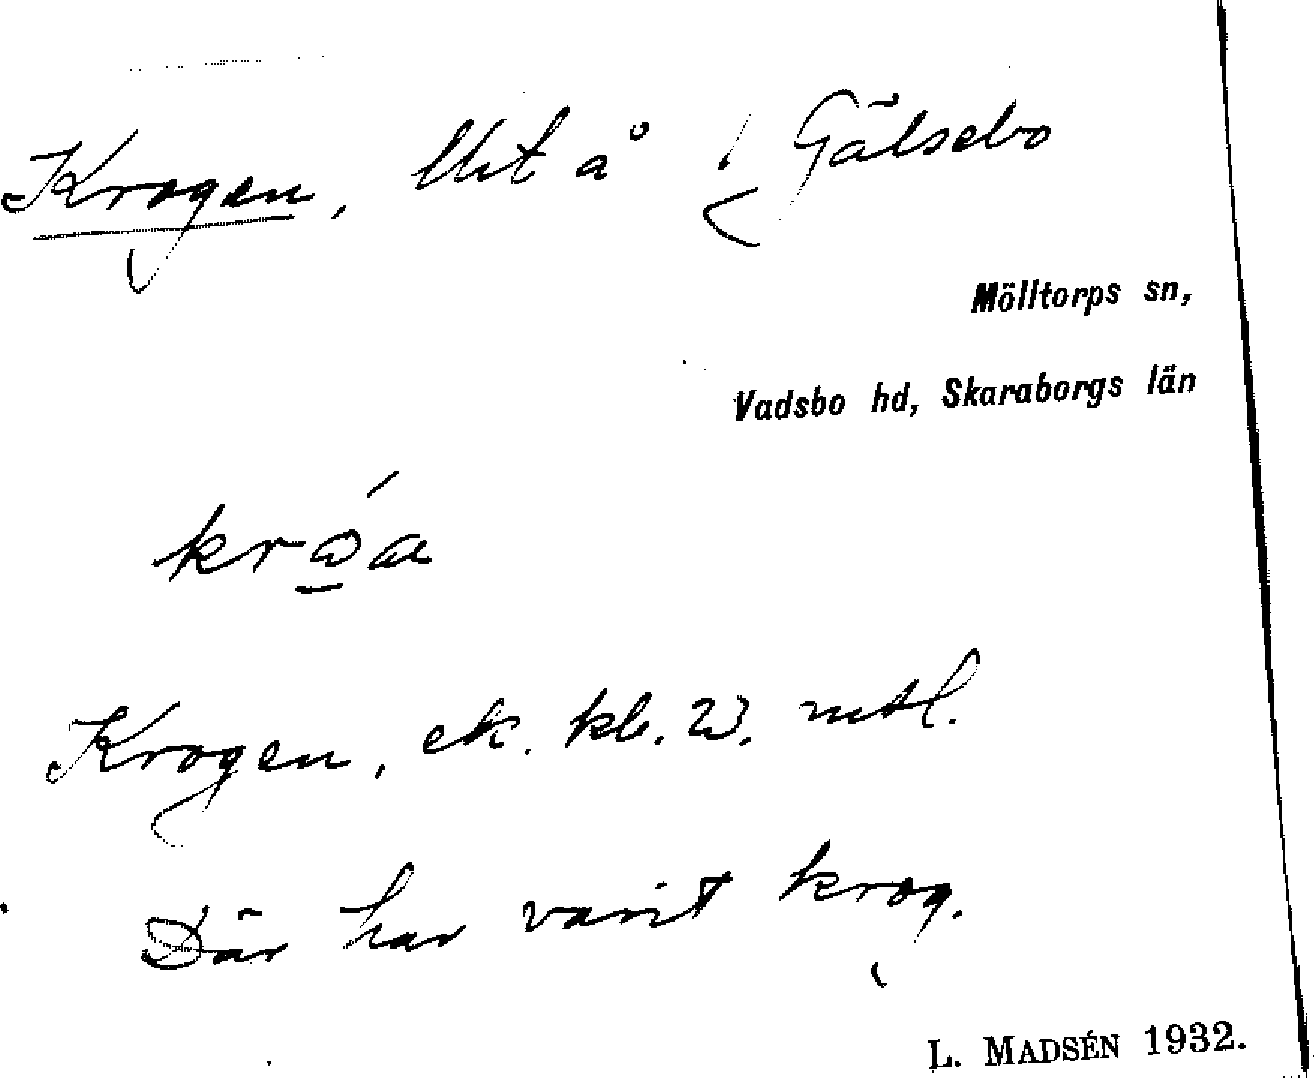 Krogen, lht å Gälsebo
Mölltorps sn,
Vadsbo hd, Skaraborgs län
Krogen, ek. kb. W. mtl.
Där har varit krog.
L. MADSÉN 1932.